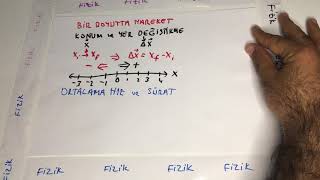 FİZİK FİZİK Fizik
BİR BOYUTTA HAREKET
KONUM ve YER DEĞİŞTİRME
x⃗ Δx⃗
xᵢ → x_f ⇒ Δx⃗ = x_f - xᵢ
- ⇐ ⇒ +
-3 -2 -1 0 1 2 3 4 X
ORTALAMA HIZ ve SÜRAT
FİZİK
FİZİK
Fizik
Fizik Fizik Fizik Fizik